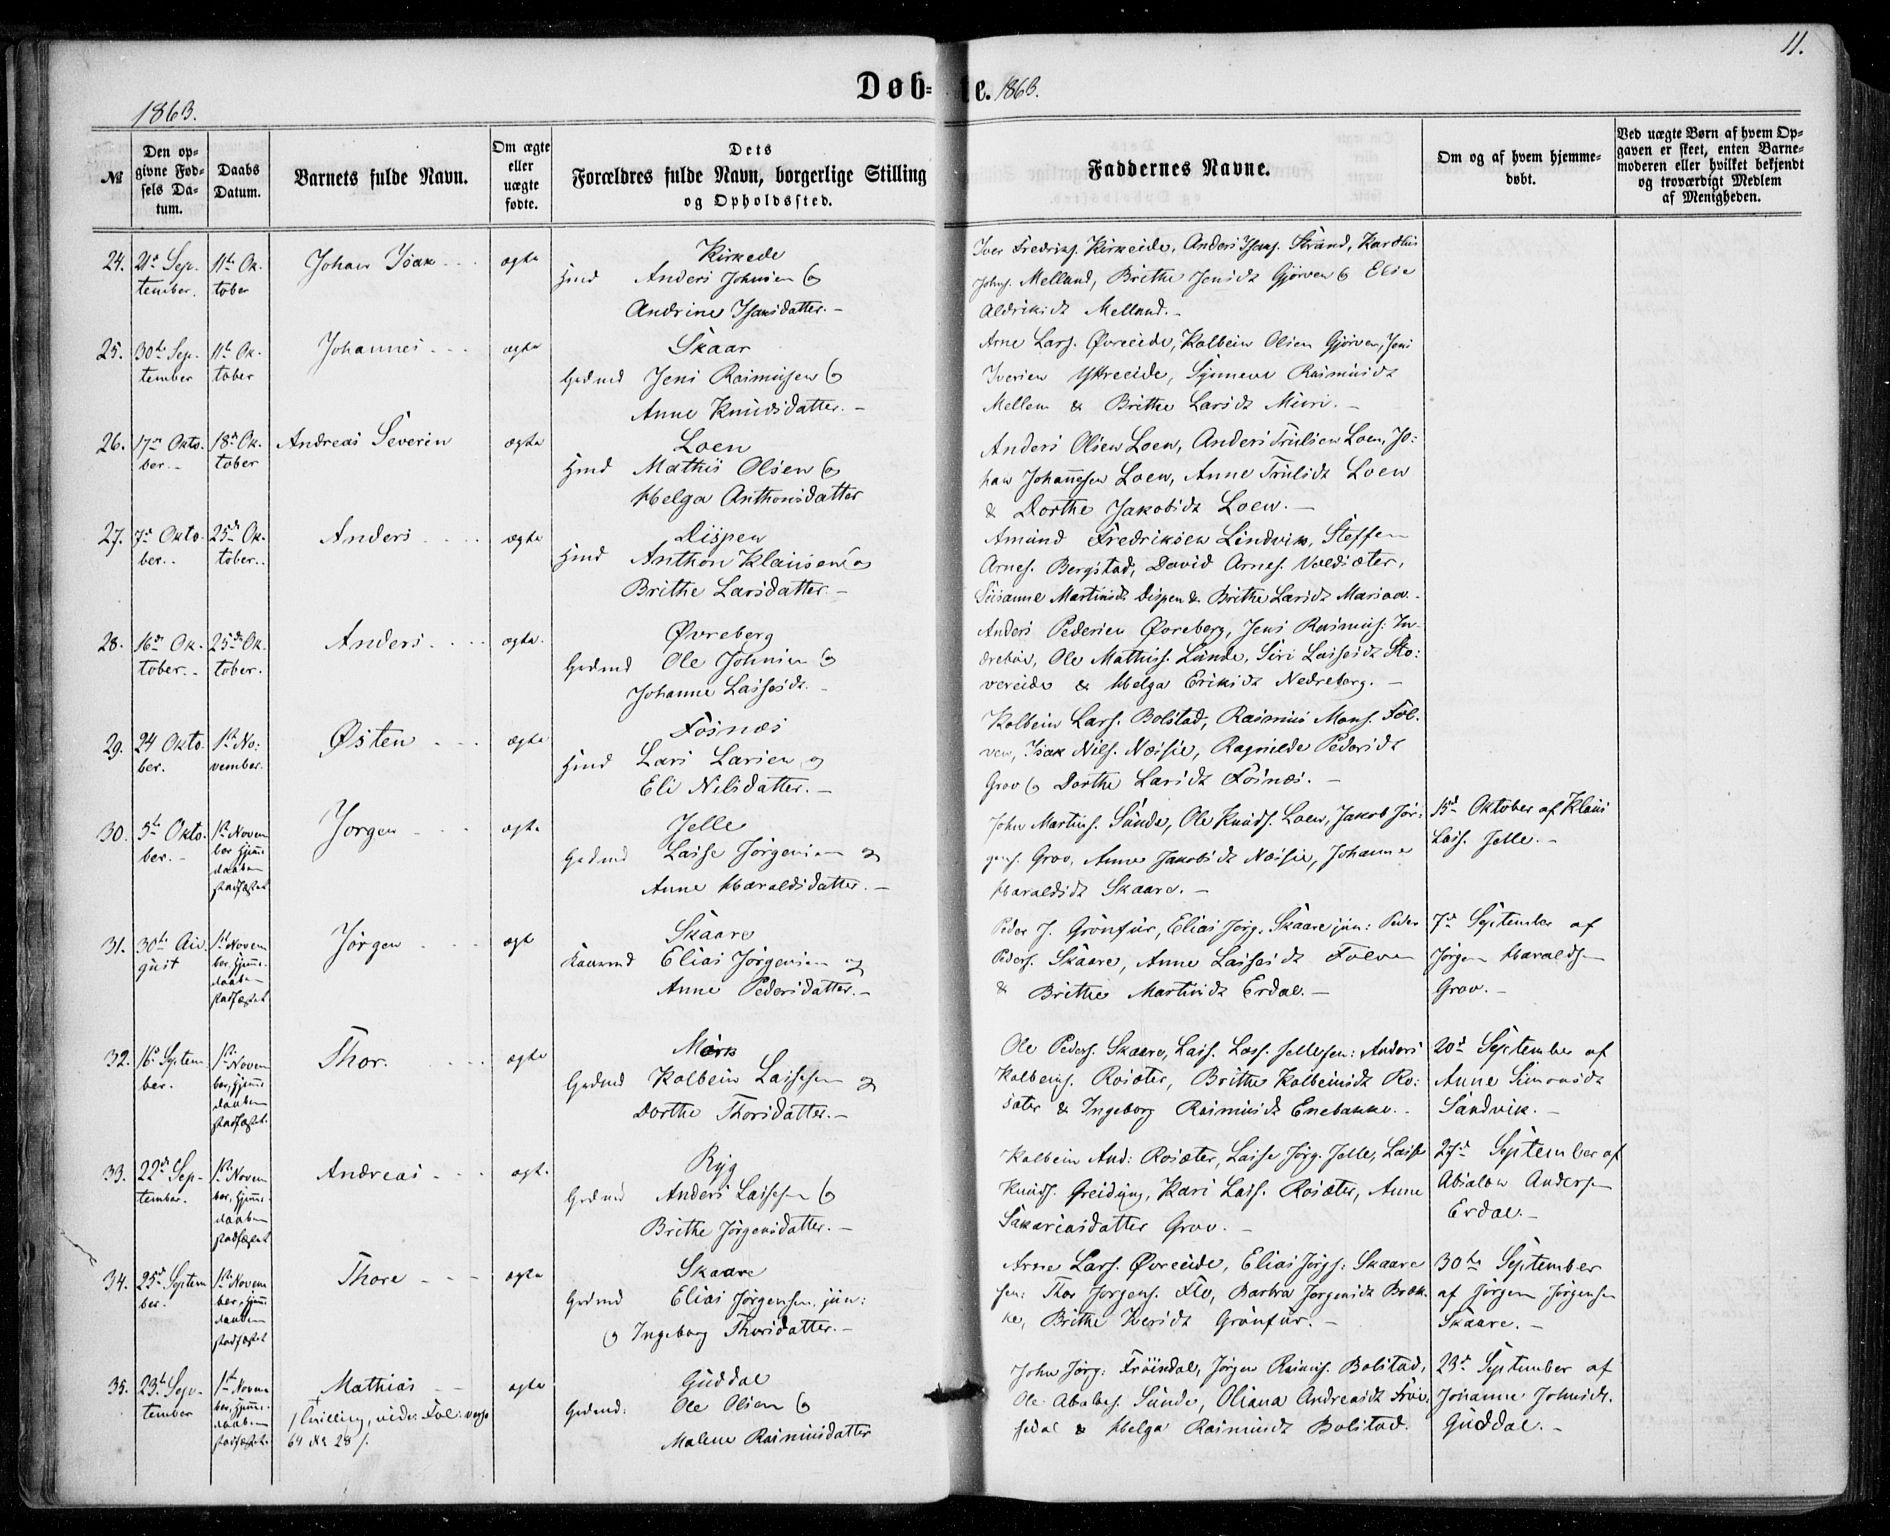 11.
Døb- te. 1863.
1863.
№
Den op-
givne Fød-
sels Da-
tum.
Daabs
Datum.
Barnets fulde Navn.
Om ægte
eller
uægte
fødte.
Dets
Forældres fulde Navn, borgerlige Stilling
og Opholdssted.
Faddernes Navne.
Om og af hvem hjemme-
døbt.
Ved uægte Børn af hvem Op-
gaven er skeet, enten Barne-
moderen eller hvilket bekjendt
og troværdigt Medlem
af Menigheden.
24. 21de Sep-
tember.
11te Ok-
tober
Johan Isak
ægte
Kirkede
Hmd Anders Johnsen &
Andrine Isaksdatter. -
Iver Fredriks. Kirkeide, Anders Isaks. Strand,
Johns. Melland, Brithe Jensdt Gjørven & Elie
Aldriksdt Melland. -
25. 30te Sep-
tember
11te Ok-
tober
Johannes
ægte
Skaar
Gbdmd Jens Rasmusen &
Anne Knudsdatter. -
Arne Lars. Øvreeide, Kolbein Olsen Gjørven, Jens
Iversen Ytreeide, Synneve Rasmusdt
Mellem & Brithe Larsdt Muri. -
26. 17de Okto-
ber.
18de Ok-
tober
Andreas Severin
ægte
Loen
Hmd Mathis Olsen &
Helga Anthonsdatter
Anders Olsen Loen, Anders Trulsen Loen, Jo-
han Johannesen Loen, Anne Trulsdt Loen
& Dorthe Jakobsdt Loen. -
27. 7de Okto-
ber.
25de Ok-
tober.
Anders
ægte
Dispen
Hmd Anthon Klausen &
Brithe Larsdatter. -
Amund Fredriksen Lindvik, Steffen
Arnes. Bergstad, David Arnes. Voldsæter,
Susanne Martinsdt Dispen & Brithe Larsdt
28. 16de Ok-
tober.
25de Ok-
tober.
Anders
ægte.
Øvreberg
Gbdmd Ole Johnsen &
Johanne Lassesdt. -
Anders Pedersen Øvreberg, Jens Rasmus. In-
drebøe, Ole Mathiss. Sunde, Siri Lassesdt Sto-
vereide & Helga Eriksdt Nedreberg. -
29. 24 Okto-
ber.
1ste No-
vember.
Østen
ægte
Fosnæs
Hmd Lars Larsen &
Eli Nilsdatter. -
Kolbein Lars. Bolstad, Rasmus Mons. Fol-
ven, Isak Nils. Næsje, Ragnilde Pedersdt
Grov & Dorthe Larsdt Fosnæs. -
30. 5te Okto-
ber. -
1ste Novem
ber Hjemme
daaben
stadfæstet
Jørgen
ægte
Jelle
Gbdmd Lasse Jørgensen &
Anne Haraldsdatter. -
John Martins. Sunde, Ole Knuds. Loen, Jakob Jør-
gens. Grov, Anne Jakobsdt Næsje, Johanne
Haraldsdt Skaare. -
15de Oktober af Klaus
Lass. Jelle. -
31. 30te Au-
gust
1ste Novem
ber, Hjemme-
daaben
stadfæstet
Jørgen
ægt
Skaare
Elias Jørgensen &
Anne Pedersdatter. -
Peder J. Grønfur, Elias Jørg. Skaare jun: Peder
Peders. Skaare, Anne Lassesdt Folven
& Brithe Martinsdt Erdal. -
7de September af
Jørgen Haraldsen
Grov. -
32. 16de Septem
ber.
1ste Novem
ber, Hjemme
daaben
stadfæstet.
Thor.
ægte
Mørk
Gbdmd Kolbein Lassesen &
Dorthe Thorsdatter. -
Ole Peders. Skaare, Lass. Lass. Jelle sen: Anders
Kolbeins. Rosæter, Brithe Kolbeinsdt Ro-
sæter & Ingeborg Rasmusdt Enebakke. -
20de September af
Anne Simonsdt
Sandvik. -
33. 22de Sep-
tember.
1ste Novem
ber, Hjemme-
daaben
stadfæstet
Andreas
ægte
Ryg
Gbdmd Anders Lassesen &
Brithe Jørgensdatter. -
Kolbein And: Rosæter, Lasse Jørg. Jelle, Lasse
Knuds. Greidung, Kari Lass. Rosæter, Anne
Sakariasdatter Grov. -
27de September af
Absalon Andersen
Erdal. -
34. 25de Septem
ber.
1ste Novem
ber, Hjemme
daaben
stadfæstet
Thore
ægte
Skaare
Gbdmd Elias Jørgensen jun:
& Ingeborg Thorsdatter. -
Arne Lars. Øvreeide, Elias Jørgs. Skaare
sen: Thor Jørgens. Flo, Barbra Jørgensdt Bræk-
ke, Brithe Iversdt Grønfur. -
30te September
af Jørgen Jørgensen
Skaare. -
35. 23de Sep-
tember
1ste Novem
ber, Hjemme-
daaben
stadfæstet
Mathias
/ Tvilling, vide: Fol: verso
64 No 28 /.
ægte
Guddal
Gbdmd: Ole Olsen &
Malene Rasmusdatter
John Jørg: Frøisdal, Jørgen Rasmus. Bolstad,
Ole Sunde, Oliana Andreasdt Frøi-
sdal & Helga Rasmusdt Bolstad.
23de September af
Johanne Johnsdt.
Guddal. -